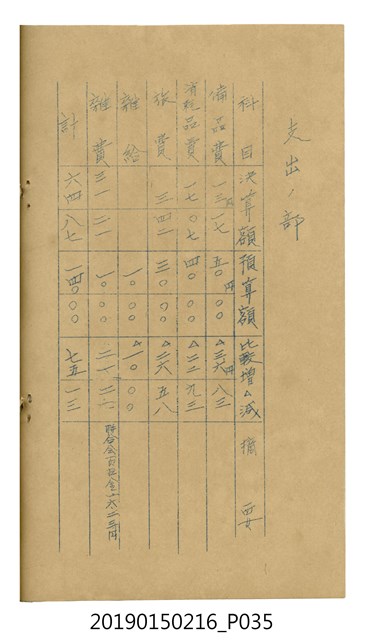 支出ノ部
科目 決算額 預算額 比較増△減 摘要
備品費 一三円一七 五〇円〇〇 △三六円八三
消耗品費 一七〇七 四〇〇〇 △二二九三
旅費 三四二 三〇〇〇 △二六五八
雑給 一〇〇〇 △一〇〇〇
雑費 三一二一 一〇〇〇 二一二一
計 六四八七 一四〇〇〇 七五一三
20190150216_P035